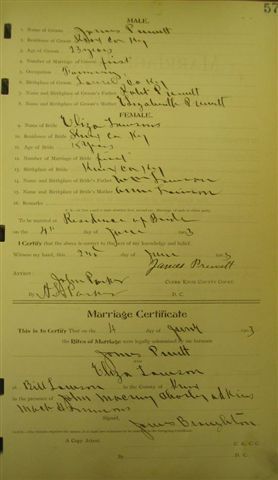 57
MALE.
1. Name of Groom James Prewitt
2. Residence of Groom Knox Co Ky
3. Age of Groom 23 years
4. Number of Marriage of Groom first
5. Occupation Farming
6. Birthplace of Groom Laurel Co Ky
7. Name and Birthplace of Groom's Father Prewitt
8. Name and Birthplace of Groom's Mother Elizabeth Prewitt
FEMALE.
9. Name of Bride Eliza Lawson
10. Residence of Bride Knox Co Ky
11. Age of Bride 18 years
12. Number of Marriage of Bride first
13. Birthplace of Bride Knox Co Ky
14. Name and Birthplace of Bride's Father Lawson
15. Name and Birthplace of Bride's Mother Lawson
16. Remarks
To be married at Residence of Bride
on the 4th day of June 1903
I Certify that the above is correct to the best of my knowledge and belief.
Witness my hand, this 2nd day of June 1903
James Prewitt
Attest:
John Parker
CLERK KNOX COUNTY COURT.
By Parker D. C.
Marriage Certificate
This is to Certify That on the 4 day of June 1903
the Rites of Marriage were legally solemnized by me between
James Pruitt
AND
Eliza Lawson
at Bill Lawson in the County of Knox
in the presence of John
Mack Simmons
Signed,
James Broughton
A Copy Attest:
By D. C.